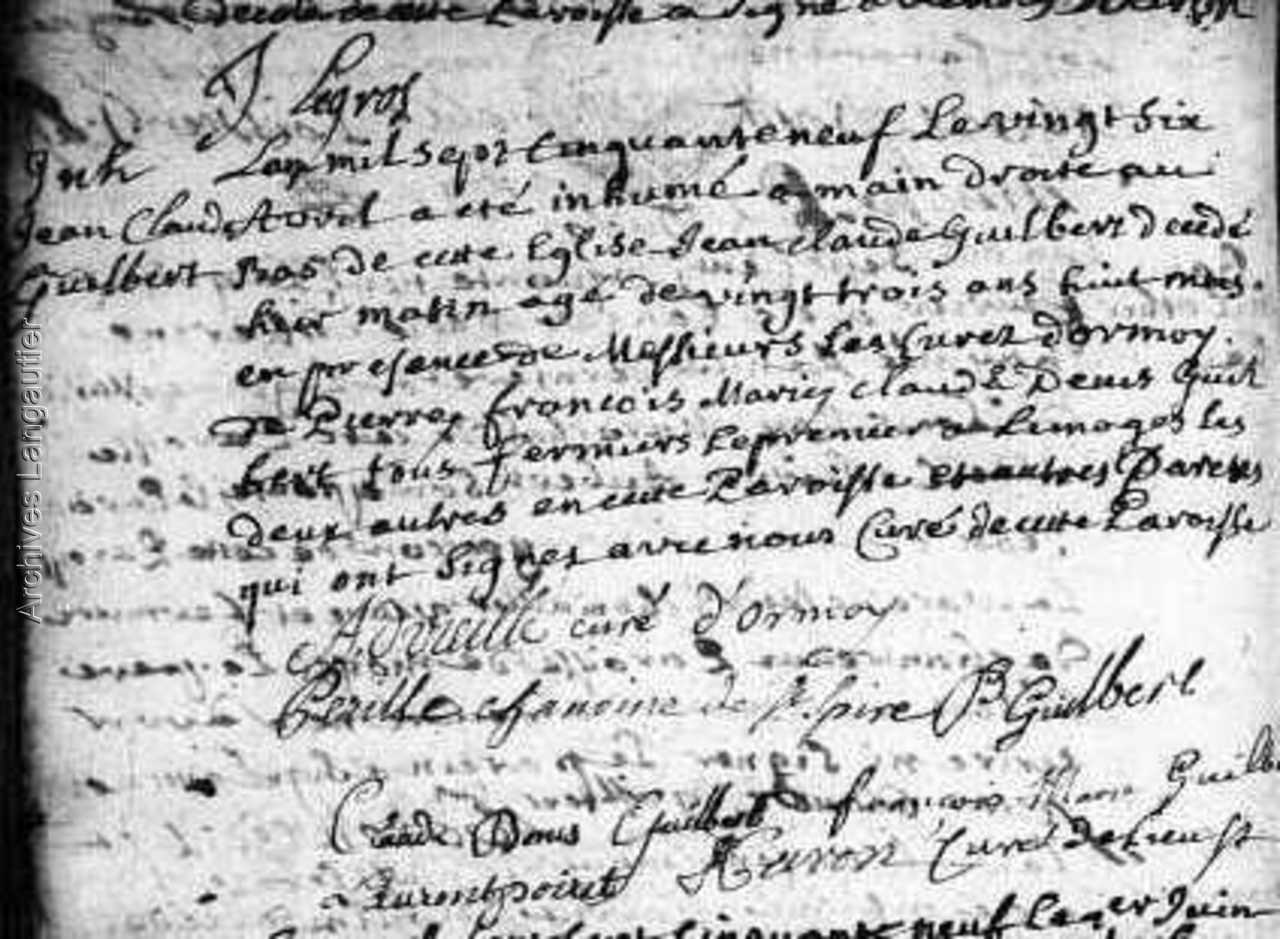 de cette Paroisse a signé
J. Legros
Inh Lan mil sept cinquante neuf Le vingt six
Jean Claud Avril a eté inhumé a main droite au
Guilbert bas de cette Eglise Jean claude Guilbert decedé
hier matin agé de vingt trois ans huit mois.
en presence de Messieurs les Curez d'ormoy.
de Pierre, françois Marie, claude Denis Guil
bert tous fermiers le premier a Limoges les
deux autres en cette Paroisse et autres Parens
qui ont signes avec nous Curé de cette Paroisse
curé d'ormoy
chanoine de St. Spire P. Guilbert
Claude Denis Guilbert françois Marie Guilbe
Curé de Lieusst
cinquante neuf le 1er Juin
Archives Langautier